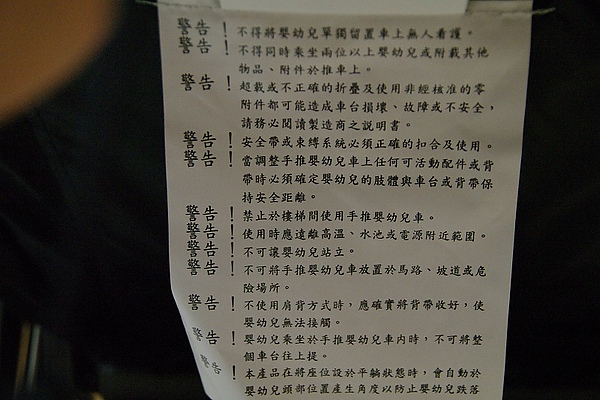 警告！不得將嬰幼兒單獨留置車上無人看護。
警告！不得同時乘坐兩位以上嬰幼兒或附載其他
物品、附件於推車上。
警告！超載或不正確的折疊及使用非經核准的零
附件都可能造成車台損壞、故障或不安全，
請務必閱讀製造商之說明書。
警告！安全帶或束縛系統必須正確的扣合及使用。
警告！當調整手推嬰幼兒車上任何可活動配件或背
帶時必須確定嬰幼兒的肢體與車台或背帶保
持安全距離。
警告！禁止於樓梯間使用手推嬰幼兒車。
警告！使用時應遠離高溫、水池或電源附近範圍。
警告！不可讓嬰幼兒站立。
警告！不可將手推嬰幼兒車放置於馬路、坡道或危
險場所。
警告！不使用肩背方式時，應確實將背帶收好，使
嬰幼兒無法接觸。
警告！嬰幼兒乘坐於手推嬰幼兒車內時，不可將整
個車台往上提。
警告！本產品在將座位設於平躺狀態時，會自動於
嬰幼兒頭部位置產生角度以防止嬰幼兒跌落